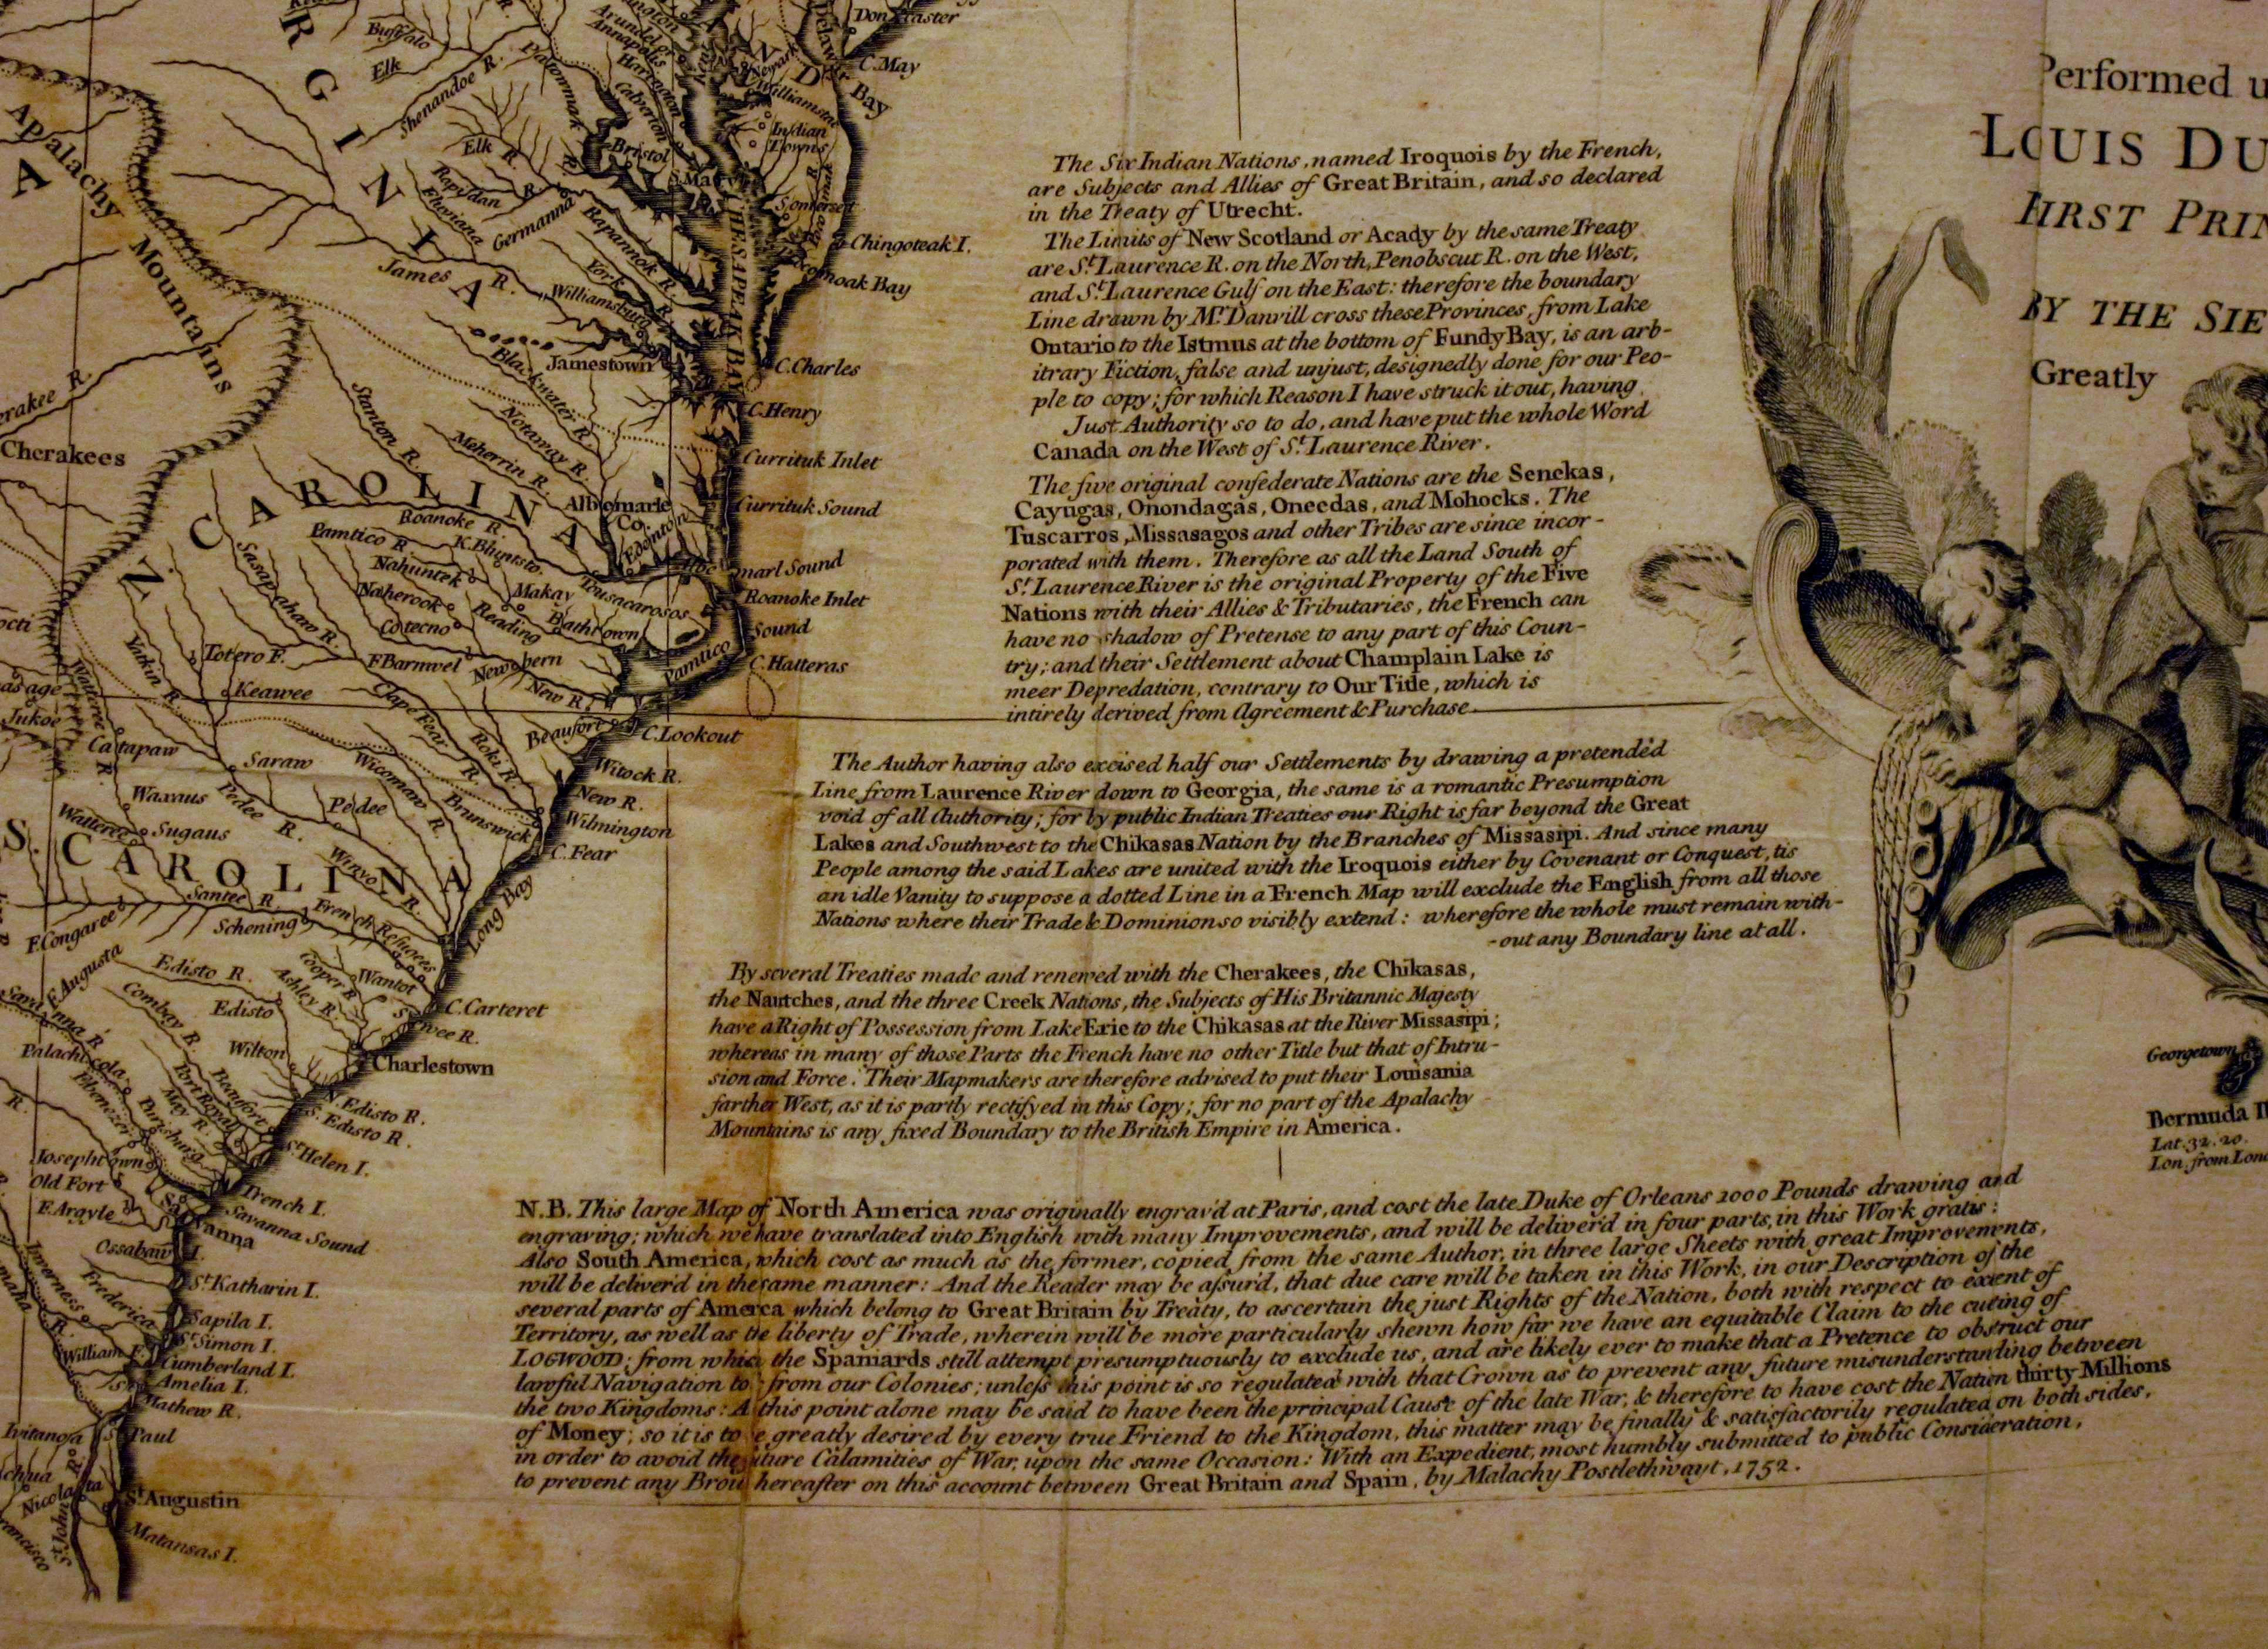 The Six Indian Nations, named Iroquois by the French,
are Subjects and Allies of Great Britain, and so declared
in the Treaty of Utrecht.
The Limits of New Scotland or Acady by the same Treaty
are St. Laurence R. on the North, Penobscut R. on the West,
and St. Laurence Gulf on the East: therefore the boundary
Line drawn by Mr. Danvill cross these Provinces, from Lake
Ontario to the Istmus at the bottom of Fundy Bay, is an arb-
itrary Fiction, false and unjust, designedly done for our Peo-
ple to copy; for which Reason I have struck it out, having
Just Authority so to do, and have put the whole Word
Canada on the West of St. Laurence River.
The five original confederate Nations are the Senekas,
Cayugas, Onondagas, Oneedas, and Mohocks. The
Tuscarros, Missasagos and other Tribes are since incor-
porated with them. Therefore as all the Land South of
St. Laurence River is the original Property of the Five
Nations with their Allies & Tributaries, the French can
have no shadow of Pretense to any part of this Coun-
try; and their Settlement about Champlain Lake is
meer Depredation, contrary to Our Title, which is
intirely derived from Agreement & Purchase
The Author having also excised half our Settlements by drawing a pretended
Line from Laurence River down to Georgia, the same is a romantic Presumption
void of all Authority; for by public Indian Treaties our Right is far beyond the Great
Lakes and Southwest to the Chikasas Nation by the Branches of Missasipi. And since many
People among the said Lakes are united with the Iroquois either by Covenant or Conquest, tis
an idle Vanity to suppose a dotted Line in a French Map will exclude the English from all those
Nations where their Trade & Dominion so visibly extend: wherefore the whole must remain with-
-out any Boundary line at all.
By several Treaties made and renewed with the Cherakees, the Chikasas,
the Nautches, and the three Creek Nations, the Subjects of His Britannic Majesty
have a Right of Possession from Lake Erie to the Chikasas at the River Missasipi;
whereas in many of those Parts the French have no other Title but that of Intru-
sion and Force. Their Mapmakers are therefore advised to put their Louisania
farther West, as it is partly rectifyed in this Copy; for no part of the Apalachy
Mountains is any fixed Boundary to the British Empire in America.
N.B. This large Map of North America was originally engrav'd at Paris, and cost the late Duke of Orleans 1000 Pounds drawing and
engraving; which we have translated into English with many Improvements, and will be deliver'd in four parts, in this Work gratis:
Also South America, which cost as much as the former, copied from the same Author, in three large Sheets with great Improvements,
will be deliver'd in the same manner: And the Reader may be assur'd, that due care will be taken in this Work, in our Description of the
several parts of Amerca which belong to Great Britain by Treaty, to ascertain the just Rights of the Nation, both with respect to extent of
Territory, as well as the liberty of Trade, wherein will be more particularly shewn how far we have an equitable Claim to the cuting of
LOGWOOD; from which the Spaniards still attempt presumptuously to exclude us, and are likely ever to make that a Pretence to obstruct our
lawful Navigation to from our Colonies; unless this point is so regulated with that Crown as to prevent any future misunderstanding between
the two Kingdoms: A this point alone may be said to have been the principal Cause of the late War, & therefore to have cost the Nation thirty Millions
of Money; so it is to e greatly desired by every true Friend to the Kingdom, this matter may be finally & satisfactorily regulated on both sides,
in order to avoid the uture Calamities of War, upon the same Occasion: With an Expedient, most humbly submitted to public Consideration,
to prevent any Brou hereafter on this account between Great Britain and Spain, by Malachy Postlethwayt, 1752.
Performed u
LOUIS DU
FIRST PRIN
BY THE SIE
Greatly
Georgetown
Bermuda I
Lat. 32. 20.
Lon. from Lon
Buffalo
Elk
Shenandoe R.
Patowmak
Annapolis
Calverton
Bristol
Newark
Indian
Towns
C. May
Bay
Elk R.
Rapidan R.
Germanna
Rapanok R.
York
VIRGINIA
Apalachy
Mountains
James R.
Williamsburg
Jamestown
Somerset
Chingoteak I.
CHESAPEAK BAY
C. Charles
C. Henry
Blackwater R.
Notaway R.
Meherrin R.
Stanton R.
Currituk Inlet
Currituk Sound
Cherakees
N. CAROLINA
Albemarle
Co.
Edenton
Roanoke R.
Pamtico R.
Nahuntek
Naherook
Makay
Cotecno
Reading
Bathtown
Tousacarosos
Roanoke Inlet
Sound
Pamtico
C. Hatteras
Sasapahaw R.
Totero F.
F. Barnwel
Newbern
New R.
Yatkin R.
Keawee
Clape Fear R.
Beaufort
C. Lookout
Catapaw
Saraw
Wicomaw R.
Roki R.
Witock R.
New R.
Wilmington
Brunswick
C. Fear
Waxaus
Pedee R.
Pedee
Wateree
Sugaus
S. CAROLINA
Winyo
Santee R.
F. Congaree
Schening
French Refugees
Long Bay
F. Augusta
Edisto R.
Cooper R.
Wantot
Ashley R.
Combay R.
Edisto
C. Carteret
Wilton
Charlestown
Savanna R.
Palachicola
Ebenezer
Purisburg
May R.
Port Royal
Beaufort
N. Edisto R.
S. Edisto R.
St. Helen I.
Josephtown
Old Fort
F. Argyle
Trench I.
Savanna
Savanna Sound
Ossabaw I.
Inverness
Frederica
St. Katharin I.
Sapila I.
St. Simon I.
William F.
Cumberland I.
Amelia I.
St. Mathew R.
Paul
St. Augustin
Matansas I.